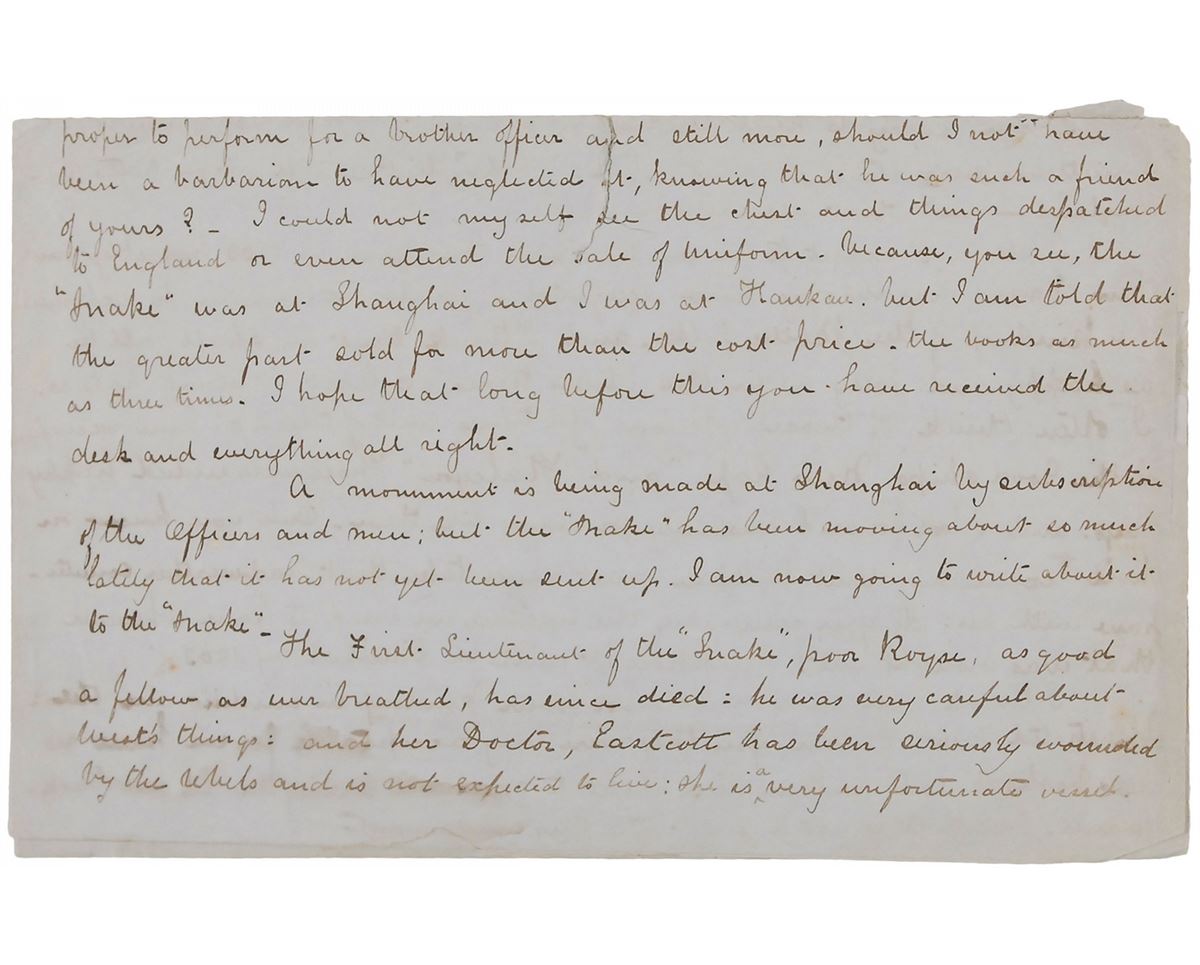 proper to perform for a brother officer and still more, should I not have
been a barbarian to have neglected it, knowing that he was such a friend
of yours? – I could not myself see the chest and things despatched
to England or even attend the sale of uniform. because, you see, the
"Snake" was at Shanghai and I was at Hankau. but I am told that
the greater part sold for more than the cost price. the books as much
as three times. I hope that long before this you have received the
desk and everything all right.
A monument is being made at Shanghai by subscription
of the Officers and men; but the "Snake" has been moving about so much
lately that it has not yet been sent up. I am now going to write about it
to the "Snake" –
The First Lieutenant of the "Snake", poor Royse, as good
a fellow as ever breathed, has since died: he was very careful about
West's things: and her Doctor, Eastcott has been seriously wounded
by the rebels and is not expected to live; she is a very unfortunate vessel.